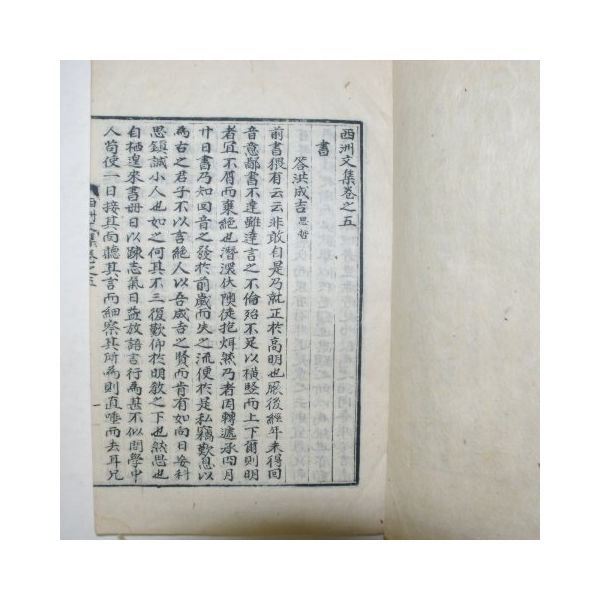 西洲文集卷之五
書
答洪成吉思哲
前書猥有云云非敢自是乃就正於高明也厥後經年未得回
音意鄙書不達雖達言之不倫殆不足以橫竪而上下爾則明
者宜不屑而棄絶也潛深伏隩徒抱烱然乃者因轉遞承四月
廿日書乃知回音之發於前歲而失之流便於是私竊歎息以
為古之君子不以言絶人以吾成吉之賢而肯有如向日妄料
思鎭誠小人也如之何其不三復歎仰於明敎之下也然思也
自栖遑來書冊日以踈志氣日益放語言行為甚不似問學中
人苟使一日接其面聽其言而細察其所為則直唾而去耳兄
西洲文集卷之五
一